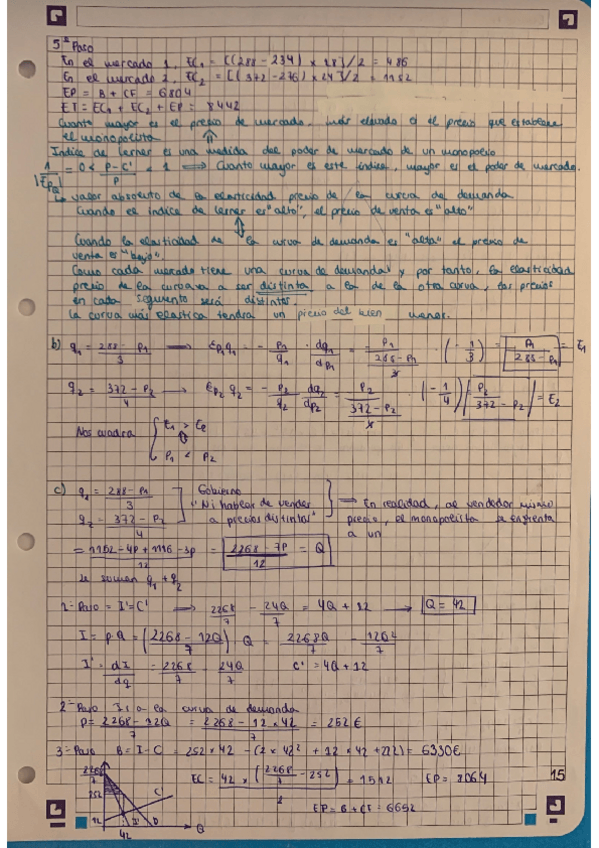 5º Paso
En el mercado 1, EC₁ = [(288 - 234) x 18]/2 = 486
En el mercado 2, EC₂ = [(372 - 276) x 24]/2 = 1152
EP = B + CF = 6804
ET = EC₁ + EC₂ + EP = 8442
Cuanto mayor es el precio de mercado, más elevado es el precio que establece
el monopolista
Índice de Lerner es una medida del poder de mercado de un monopolio
1/|Ep q| = 0 < (P - C')/P < 1 ⟹ Cuanto mayor es este índice, mayor es el poder de mercado.
valor absoluto de la elasticidad precio de la curva de demanda
Cuando el índice de Lerner es "alto", el precio de venta es "alto"
Cuando la elasticidad de la curva de demanda es "alta" el precio de
venta es "bajo".
Como cada mercado tiene una curva de demanda y por tanto, la elasticidad
precio de la curva va a ser distinta a la de la otra curva, los precios
en cada segmento será distintos.
La curva más elastica tendrá un precio del bien menor.
b) q₁ = (288 - P₁)/3 ⟶ Ep₁q₁ = - P₁/q₁ · dq₁/dp₁ = P₁/(288 - P₁)/3 · (-1/3) = P₁/(288 - P₁) = E₁
q₂ = (372 - P₂)/4 ⟶ Ep₂q₂ = - P₂/q₂ dq₂/dp₂ = P₂/(372 - P₂)/4 · (-1/4) P₂/(372 - P₂) = E₂
Nos cuadra { E₁ > E₂
P₁ < P₂
c) q₁ = (288 - P₁)/3 Gobierno
"Ni hablar de vender → En realidad, al vender al mismo
q₂ = (372 - P₂)/4 a precios distintos" precio, el monopolista se enfrenta
a un
= (1152 - 4P + 1116 - 3P)/12 = (2268 - 7P)/12 = Q
Se suman q₁ + q₂
1º Paso = I' = C' ⟶ 2268/7 - 24Q/7 = 4Q + 12 ⟶ Q = 42
I = p·Q = (2268 - 12Q)/7 Q = 2268Q/7 - 12Q²/7
I' = dI/dq = 2268/7 - 24Q/7 C' = 4Q + 12
2º Paso a la curva de demanda
P = (2268 - 12Q)/7 = (2268 - 12 x 42)/7 = 252 €
3º Paso B = I - C = 252 x 42 - (2 x 42² + 12 x 42 + 222) = 6330€
EC = 42 x (2268/7 - 252)/2 = 1512 EP = 8064
EP = B + CF = 6552
2268/7
252
12
C'
I'
D
Q
42
15